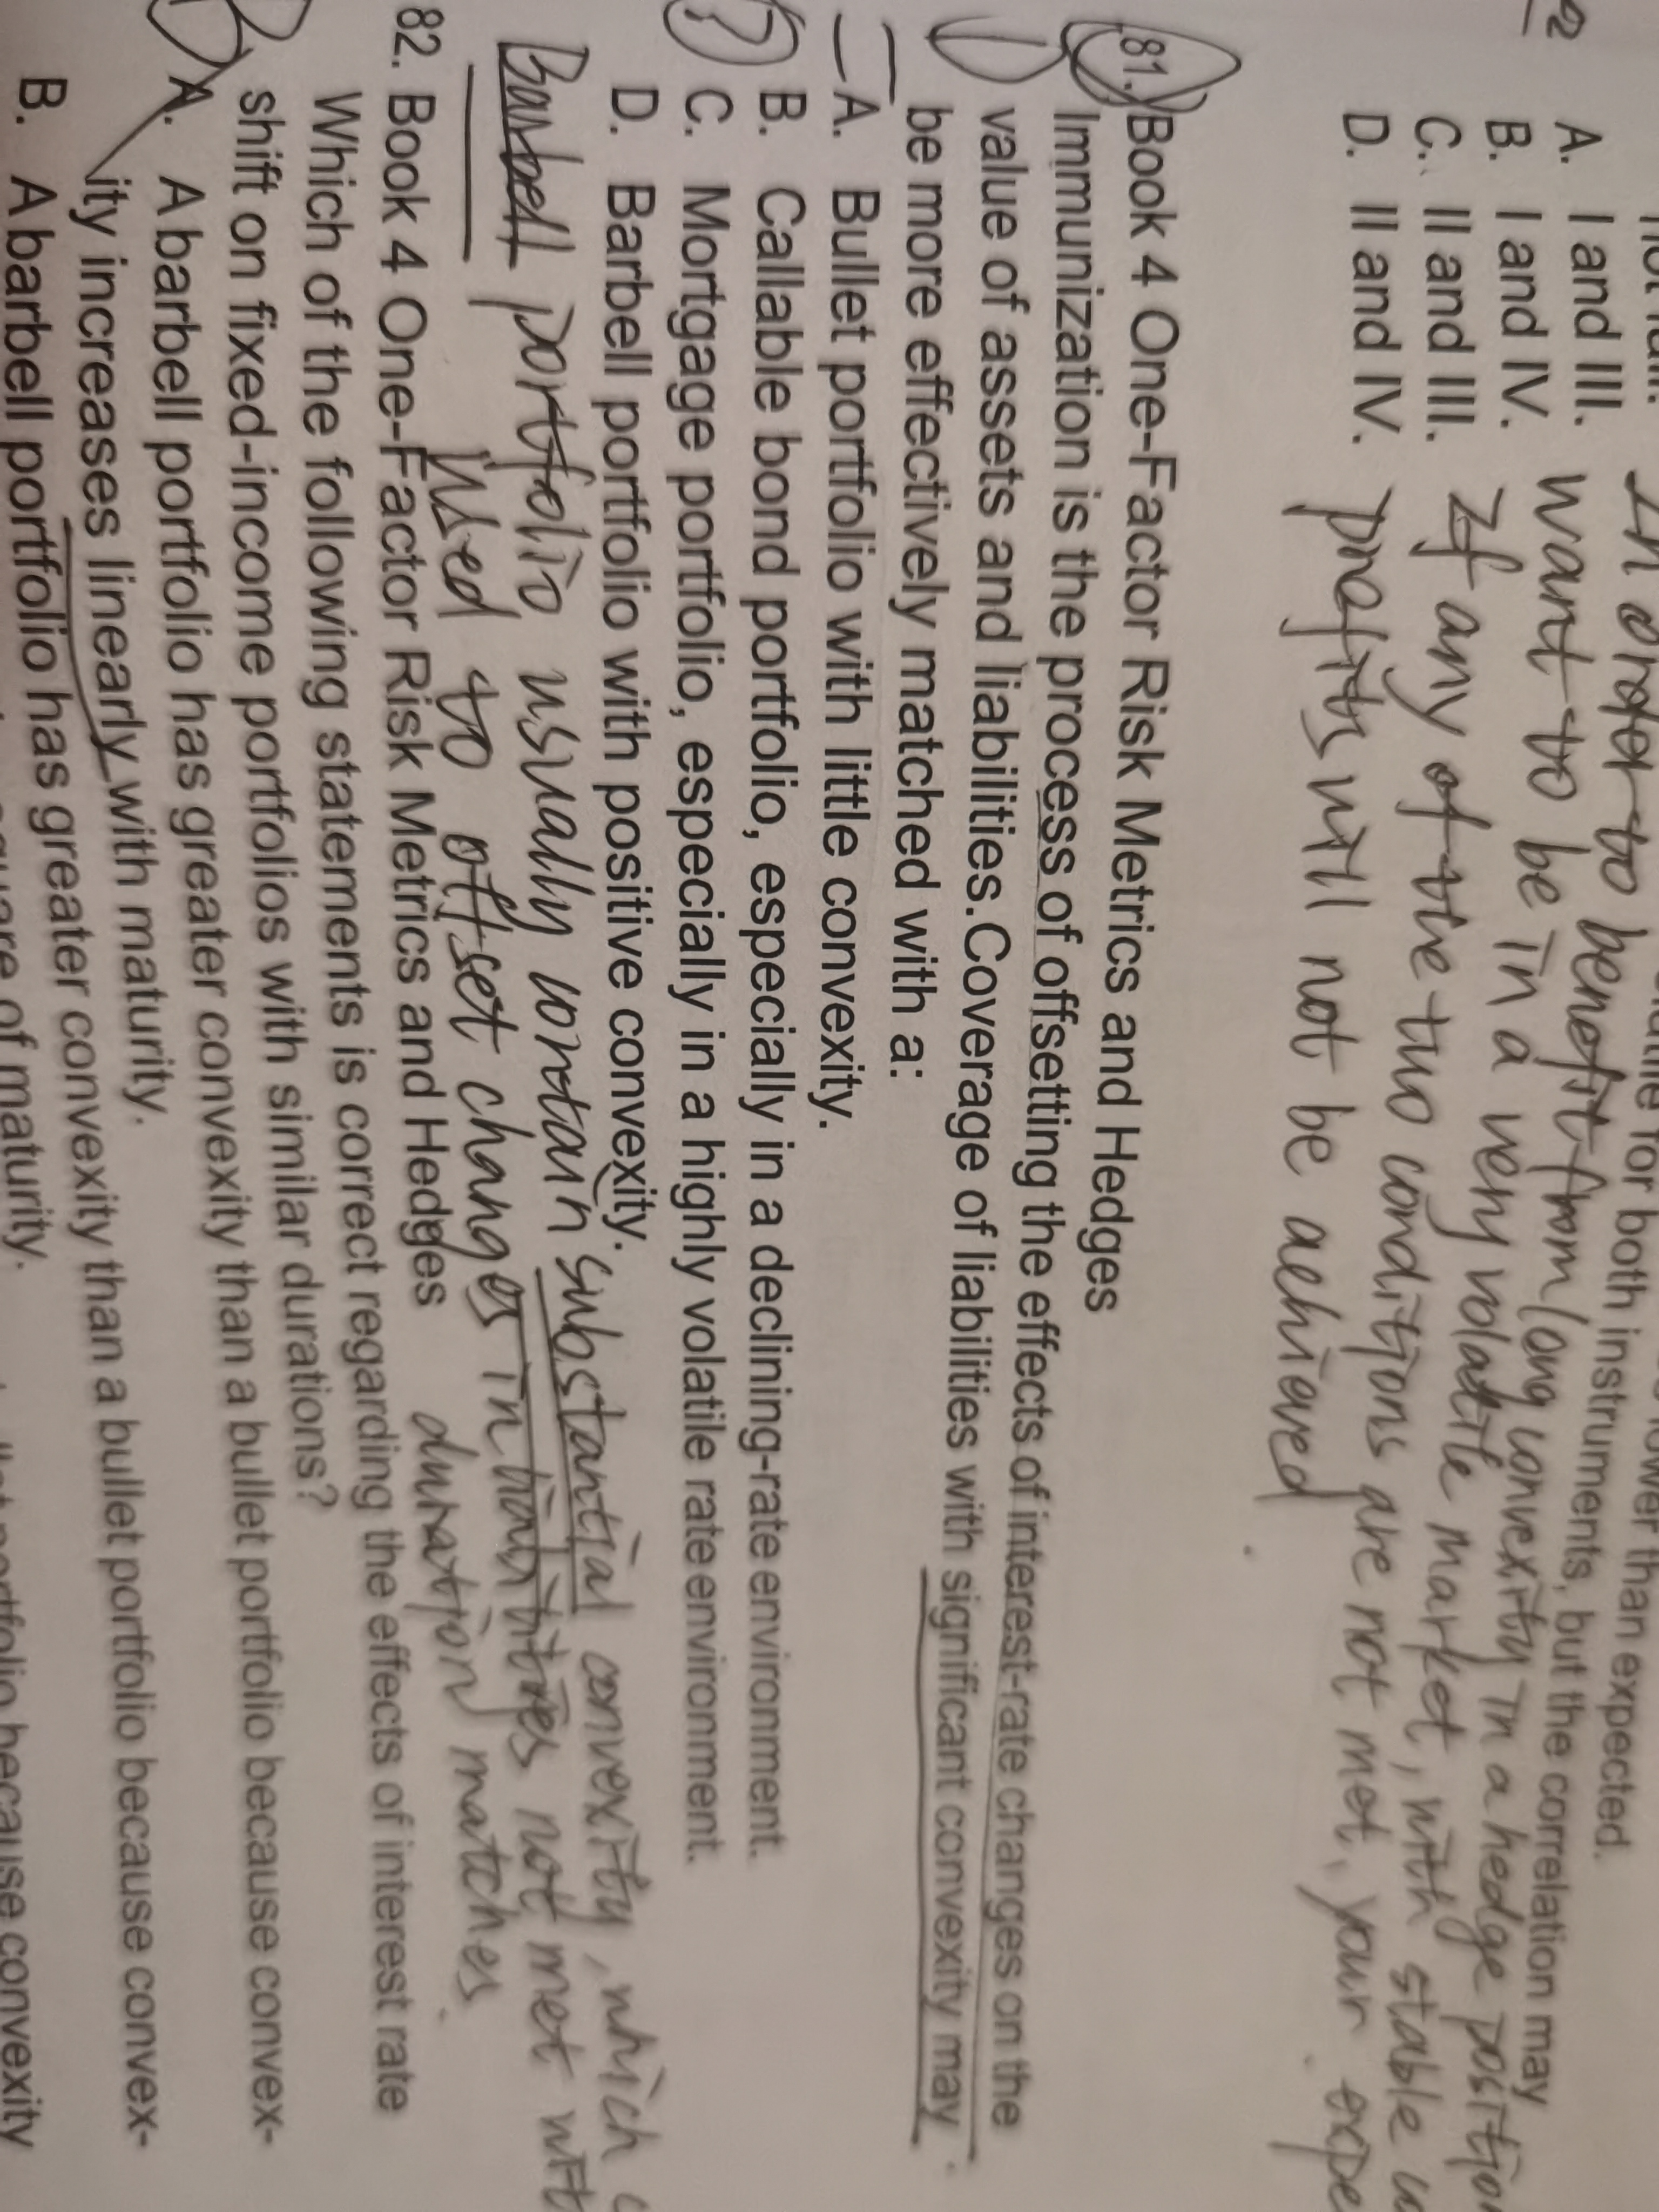 not fall.
A. I and III.
B. I and IV.
C. II and III.
D. II and IV.
lower than expected.
for both instruments, but the correlation may
In order to benefit from long convexity in a hedge position
want to be in a very volatile market, with stable
If any of the two conditions are not met, your
profits will not be achieved.
81. Book 4 One-Factor Risk Metrics and Hedges
Immunization is the process of offsetting the effects of interest-rate changes on the
value of assets and liabilities.Coverage of liabilities with significant convexity may
be more effectively matched with a:
A. Bullet portfolio with little convexity.
B. Callable bond portfolio, especially in a declining-rate environment.
C. Mortgage portfolio, especially in a highly volatile rate environment.
D. Barbell portfolio with positive convexity.
Barbell portfolio usually contain substantial convexity, which
used to offset changes in not met
duration matches.
82. Book 4 One-Factor Risk Metrics and Hedges
Which of the following statements is correct regarding the effects of interest rate
shift on fixed-income portfolios with similar durations?
A. A barbell portfolio has greater convexity than a bullet portfolio because convex-
ity increases linearly with maturity.
B. A barbell portfolio has greater convexity than a bullet portfolio because convex-
square of maturity.
portfolio because convexity